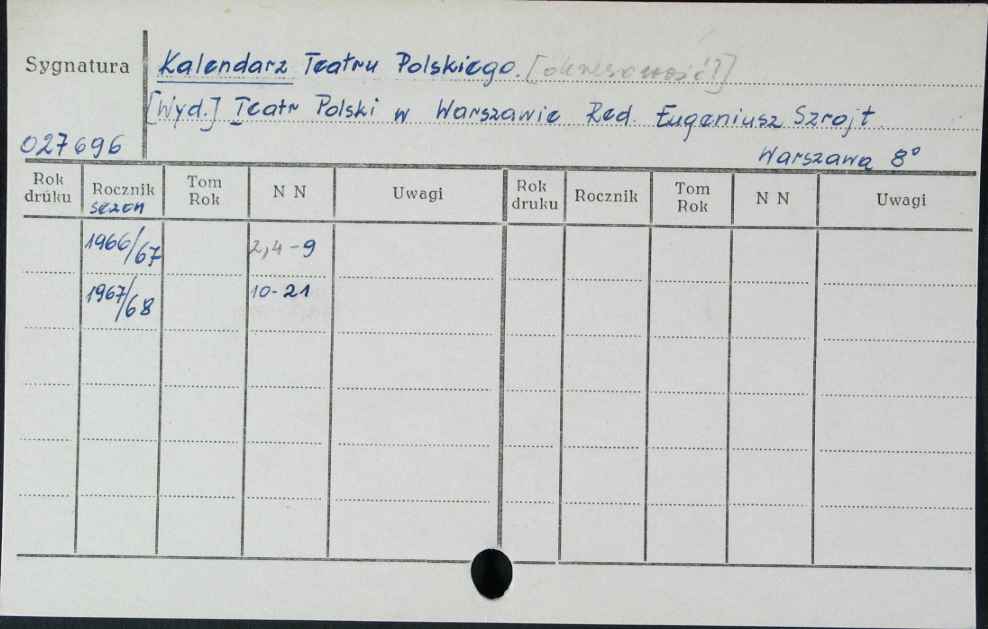 Sygnatura
Kalendarz Teatru Polskiego. [okresowość?]
[Wyd.] Teatr Polski w Warszawie Red. Eugeniusz Szrojt
027696
Warszawa 8°
Rok druku Rocznik sezon Tom Rok N N Uwagi Rok druku Rocznik Tom Rok N N Uwagi
1966/67 2,4-9
1967/68 10-21